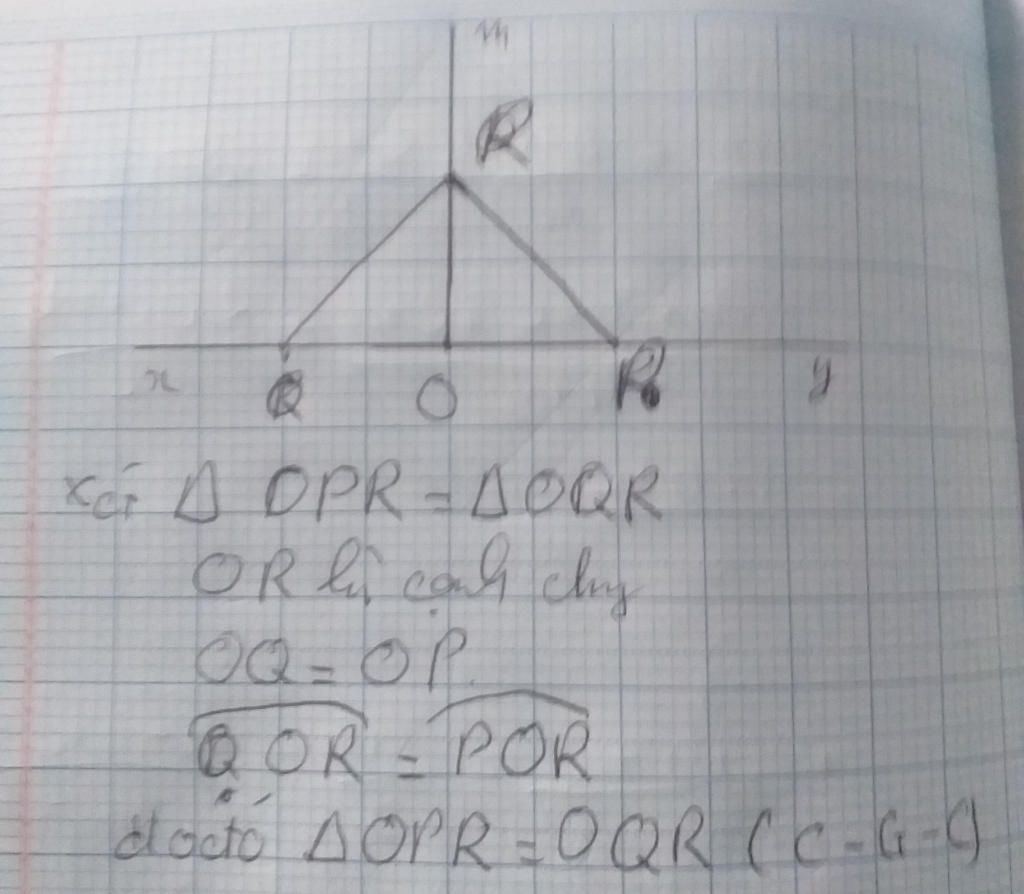 m
R
x Q O P y
Δ OPR = ΔOQR
OR là cạnh chung
OQ = OP
QOR = POR
do đó ΔOPR = OQR (C-G-C)